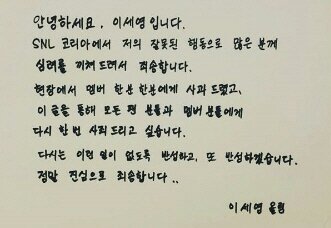 안녕하세요, 이세영입니다.
SNL 코리아에서 저의 잘못된 행동으로 많은 분께
심려를 끼쳐드려서 죄송합니다.
현장에서 멤버 한분 한분에게 사과 드렸고,
이 글을 통해 모든 팬 분들과 멤버 분들에게
다시 한 번 사죄드리고 싶습니다.
다시는 이런 일이 없도록 반성하고, 또 반성하겠습니다.
정말 진심으로 죄송합니다..
이세영 올림